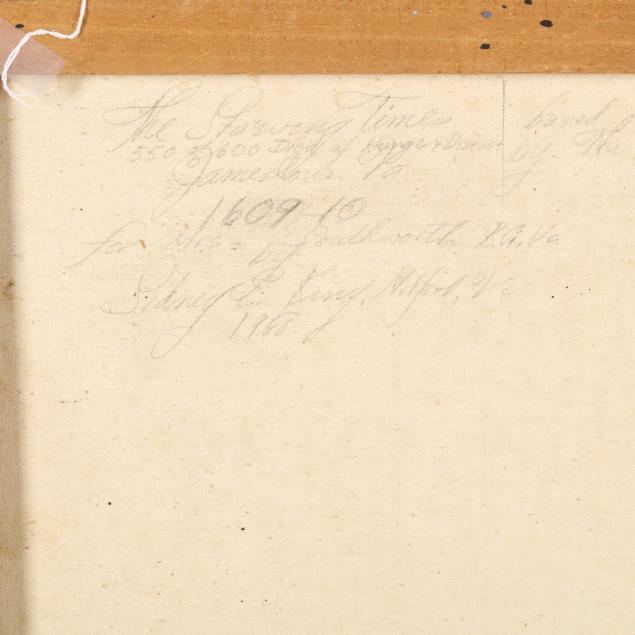 The Starving Time
550 of 600 Died of Hunger & Disease
Jamestown Va
1609-10
for Mrs. Southworth K.G. Va
by
Sidney E. King, Milford, Va
based
by